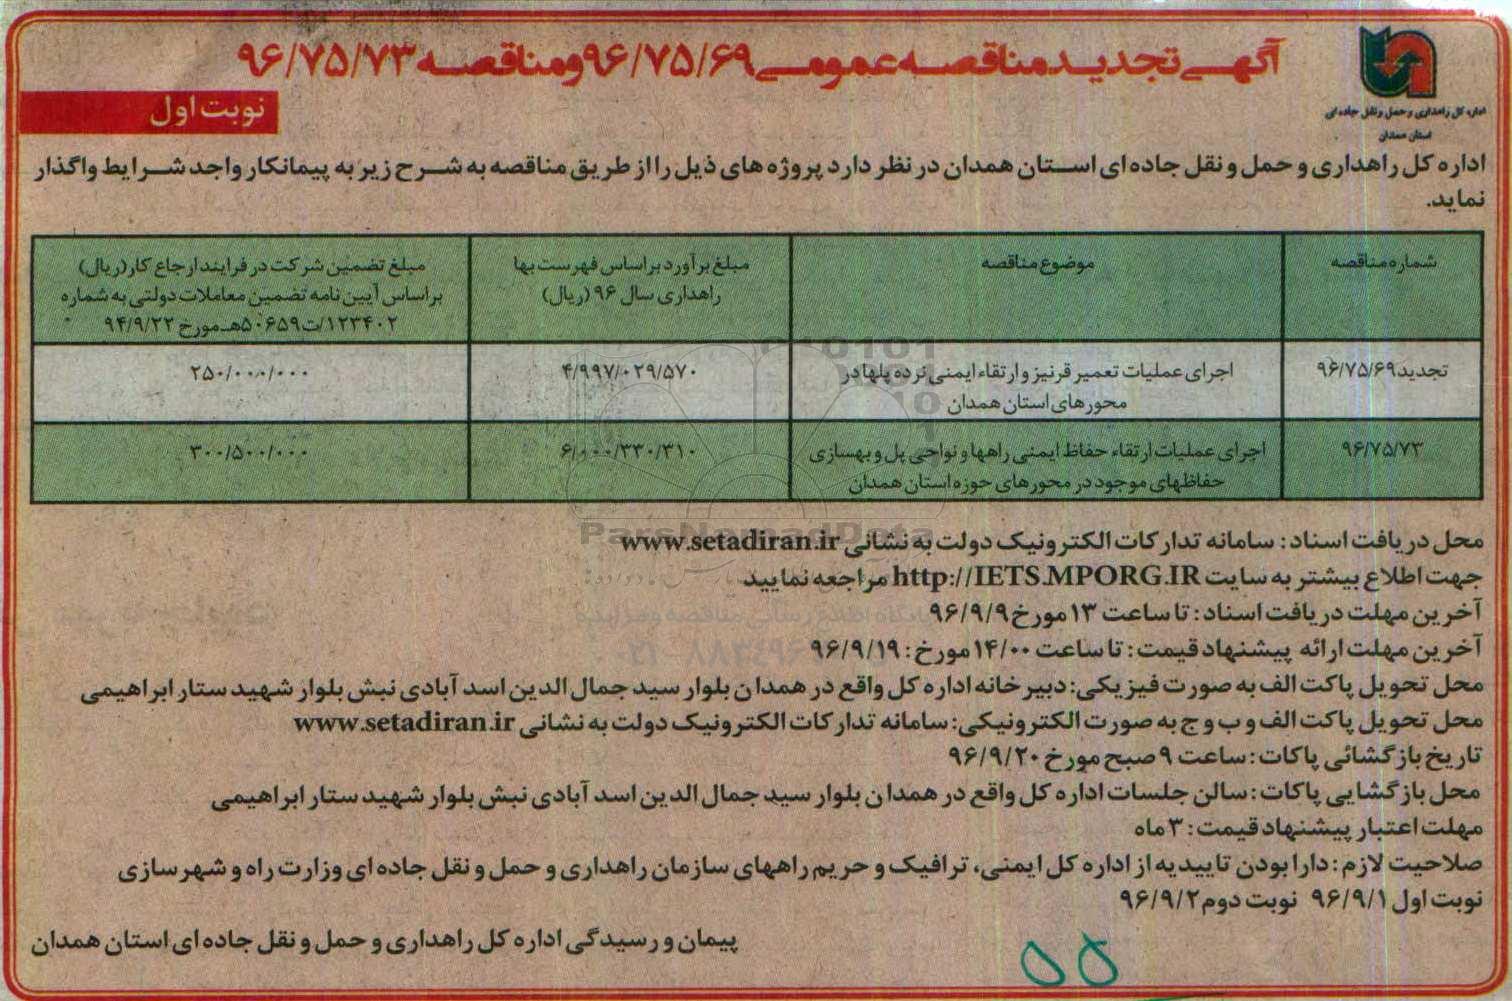 آگهی تجدید مناقصه عمومی ۹۶/۷۵/۶۹ و مناقصه ۹۶/۷۵/۷۳
اداره کل راهداری و حمل و نقل جاده ای
استان همدان
نوبت اول
اداره کل راهداری و حمل و نقل جاده ای استان همدان در نظر دارد پروژه های ذیل را از طریق مناقصه به شرح زیر به پیمانکار واجد شرایط واگذار
نماید.
شماره مناقصه
موضوع مناقصه
مبلغ برآورد براساس فهرست بها
راهداری سال ۹۶ (ریال)
مبلغ تضمین شرکت در فرایند ارجاع کار(ریال)
براساس آیین نامه تضمین معاملات دولتی به شماره
۱۲۳۴۰۲/ت۵۰۶۵۹هـ مورخ ۹۴/۹/۲۲
تجدید ۹۶/۷۵/۶۹
اجرای عملیات تعمیر قرنیز و ارتقاء ایمنی نرده پلها در
محورهای استان همدان
۴/۹۹۷/۰۲۹/۵۷۰
۲۵۰/۰۰۰/۰۰۰
۹۶/۷۵/۷۳
اجرای عملیات ارتقاء حفاظ ایمنی راهها و نواحی پل و بهسازی
حفاظهای موجود در محورهای حوزه استان همدان
۶/۰۰۰/۳۳۰/۳۱۰
۳۰۰/۵۰۰/۰۰۰
محل دریافت اسناد : سامانه تدارکات الکترونیک دولت به نشانی www.setadiran.ir
جهت اطلاع بیشتر به سایت http://IETS.MPORG.IR مراجعه نمایید
آخرین مهلت دریافت اسناد : تا ساعت ۱۳ مورخ ۹۶/۹/۹
آخرین مهلت ارائه پیشنهاد قیمت : تا ساعت ۱۴/۰۰ مورخ : ۹۶/۹/۱۹
محل تحویل پاکت الف به صورت فیزیکی: دبیرخانه اداره کل واقع در همدان بلوار سید جمال الدین اسد آبادی نبش بلوار شهید ستار ابراهیمی
محل تحویل پاکت الف و ب و ج به صورت الکترونیکی: سامانه تدارکات الکترونیک دولت به نشانی www.setadiran.ir
تاریخ بازگشائی پاکات : ساعت ۹ صبح مورخ ۹۶/۹/۲۰
محل بازگشایی پاکات : سالن جلسات اداره کل واقع در همدان بلوار سید جمال الدین اسد آبادی نبش بلوار شهید ستار ابراهیمی
مهلت اعتبار پیشنهاد قیمت : ۳ ماه
صلاحیت لازم : دارا بودن تاییدیه از اداره کل ایمنی، ترافیک و حریم راههای سازمان راهداری و حمل و نقل جاده ای وزارت راه و شهرسازی
نوبت اول ۹۶/۹/۱ نوبت دوم ۹۶/۹/۲
پیمان و رسیدگی اداره کل راهداری و حمل و نقل جاده ای استان همدان
۵۵
ParsNamadData